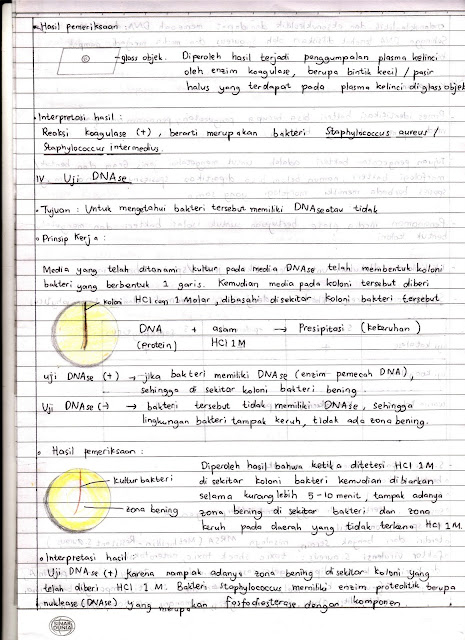 • Hasil pemeriksaan
glass objek. Diperoleh hasil terjadi penggumpalan plasma kelinci
oleh enzim koagulase, berupa bintik kecil / pasir
halus yang terdapat pada plasma kelinci di glass objek
• Interpretasi hasil :
Reaksi koagulase (+), berarti merupakan bakteri Staphylococcus aureus /
Staphylococcus intermedius.
IV. Uji DNAse
• Tujuan : Untuk mengetahui bakteri tersebut memiliki DNAse atau tidak
• Prinsip Kerja :
Media yang telah ditanami kultur pada media DNAse telah membentuk koloni
bakteri yang berbentuk 1 garis. Kemudian media pada koloni tersebut diberi
koloni HCl 1 Molar, dibasahi di sekitar koloni bakteri tersebut
DNA + asam → Presipitasi (kekeruhan)
(protein) HCl 1M
uji DNAse (+) → jika bakteri memiliki DNAse (enzim pemecah DNA),
sehingga di sekitar koloni bakteri bening.
Uji DNAse (-) → bakteri tersebut tidak memiliki DNAse, sehingga
lingkungan bakteri tampak keruh, tidak ada zona bening.
• Hasil pemeriksaan :
Diperoleh hasil bahwa ketika ditetesi HCl 1M
kultur bakteri di sekitar koloni bakteri kemudian dibiarkan
selama kurang lebih 5-10 menit, tampak adanya
zona bening zona bening di sekitar bakteri dan zona
keruh pada daerah yang tidak terkena HCl 1M.
• Interpretasi hasil :
Uji DNAse (+) karena nampak adanya zona bening di sekitar koloni yang
telah diberi HCl 1 M. Bakteri Staphylococcus memiliki enzim proteolitik berupa
nuklease (DNAse) yang merupakan fosfodiesterase dengan komponen
SINAR DUNIA